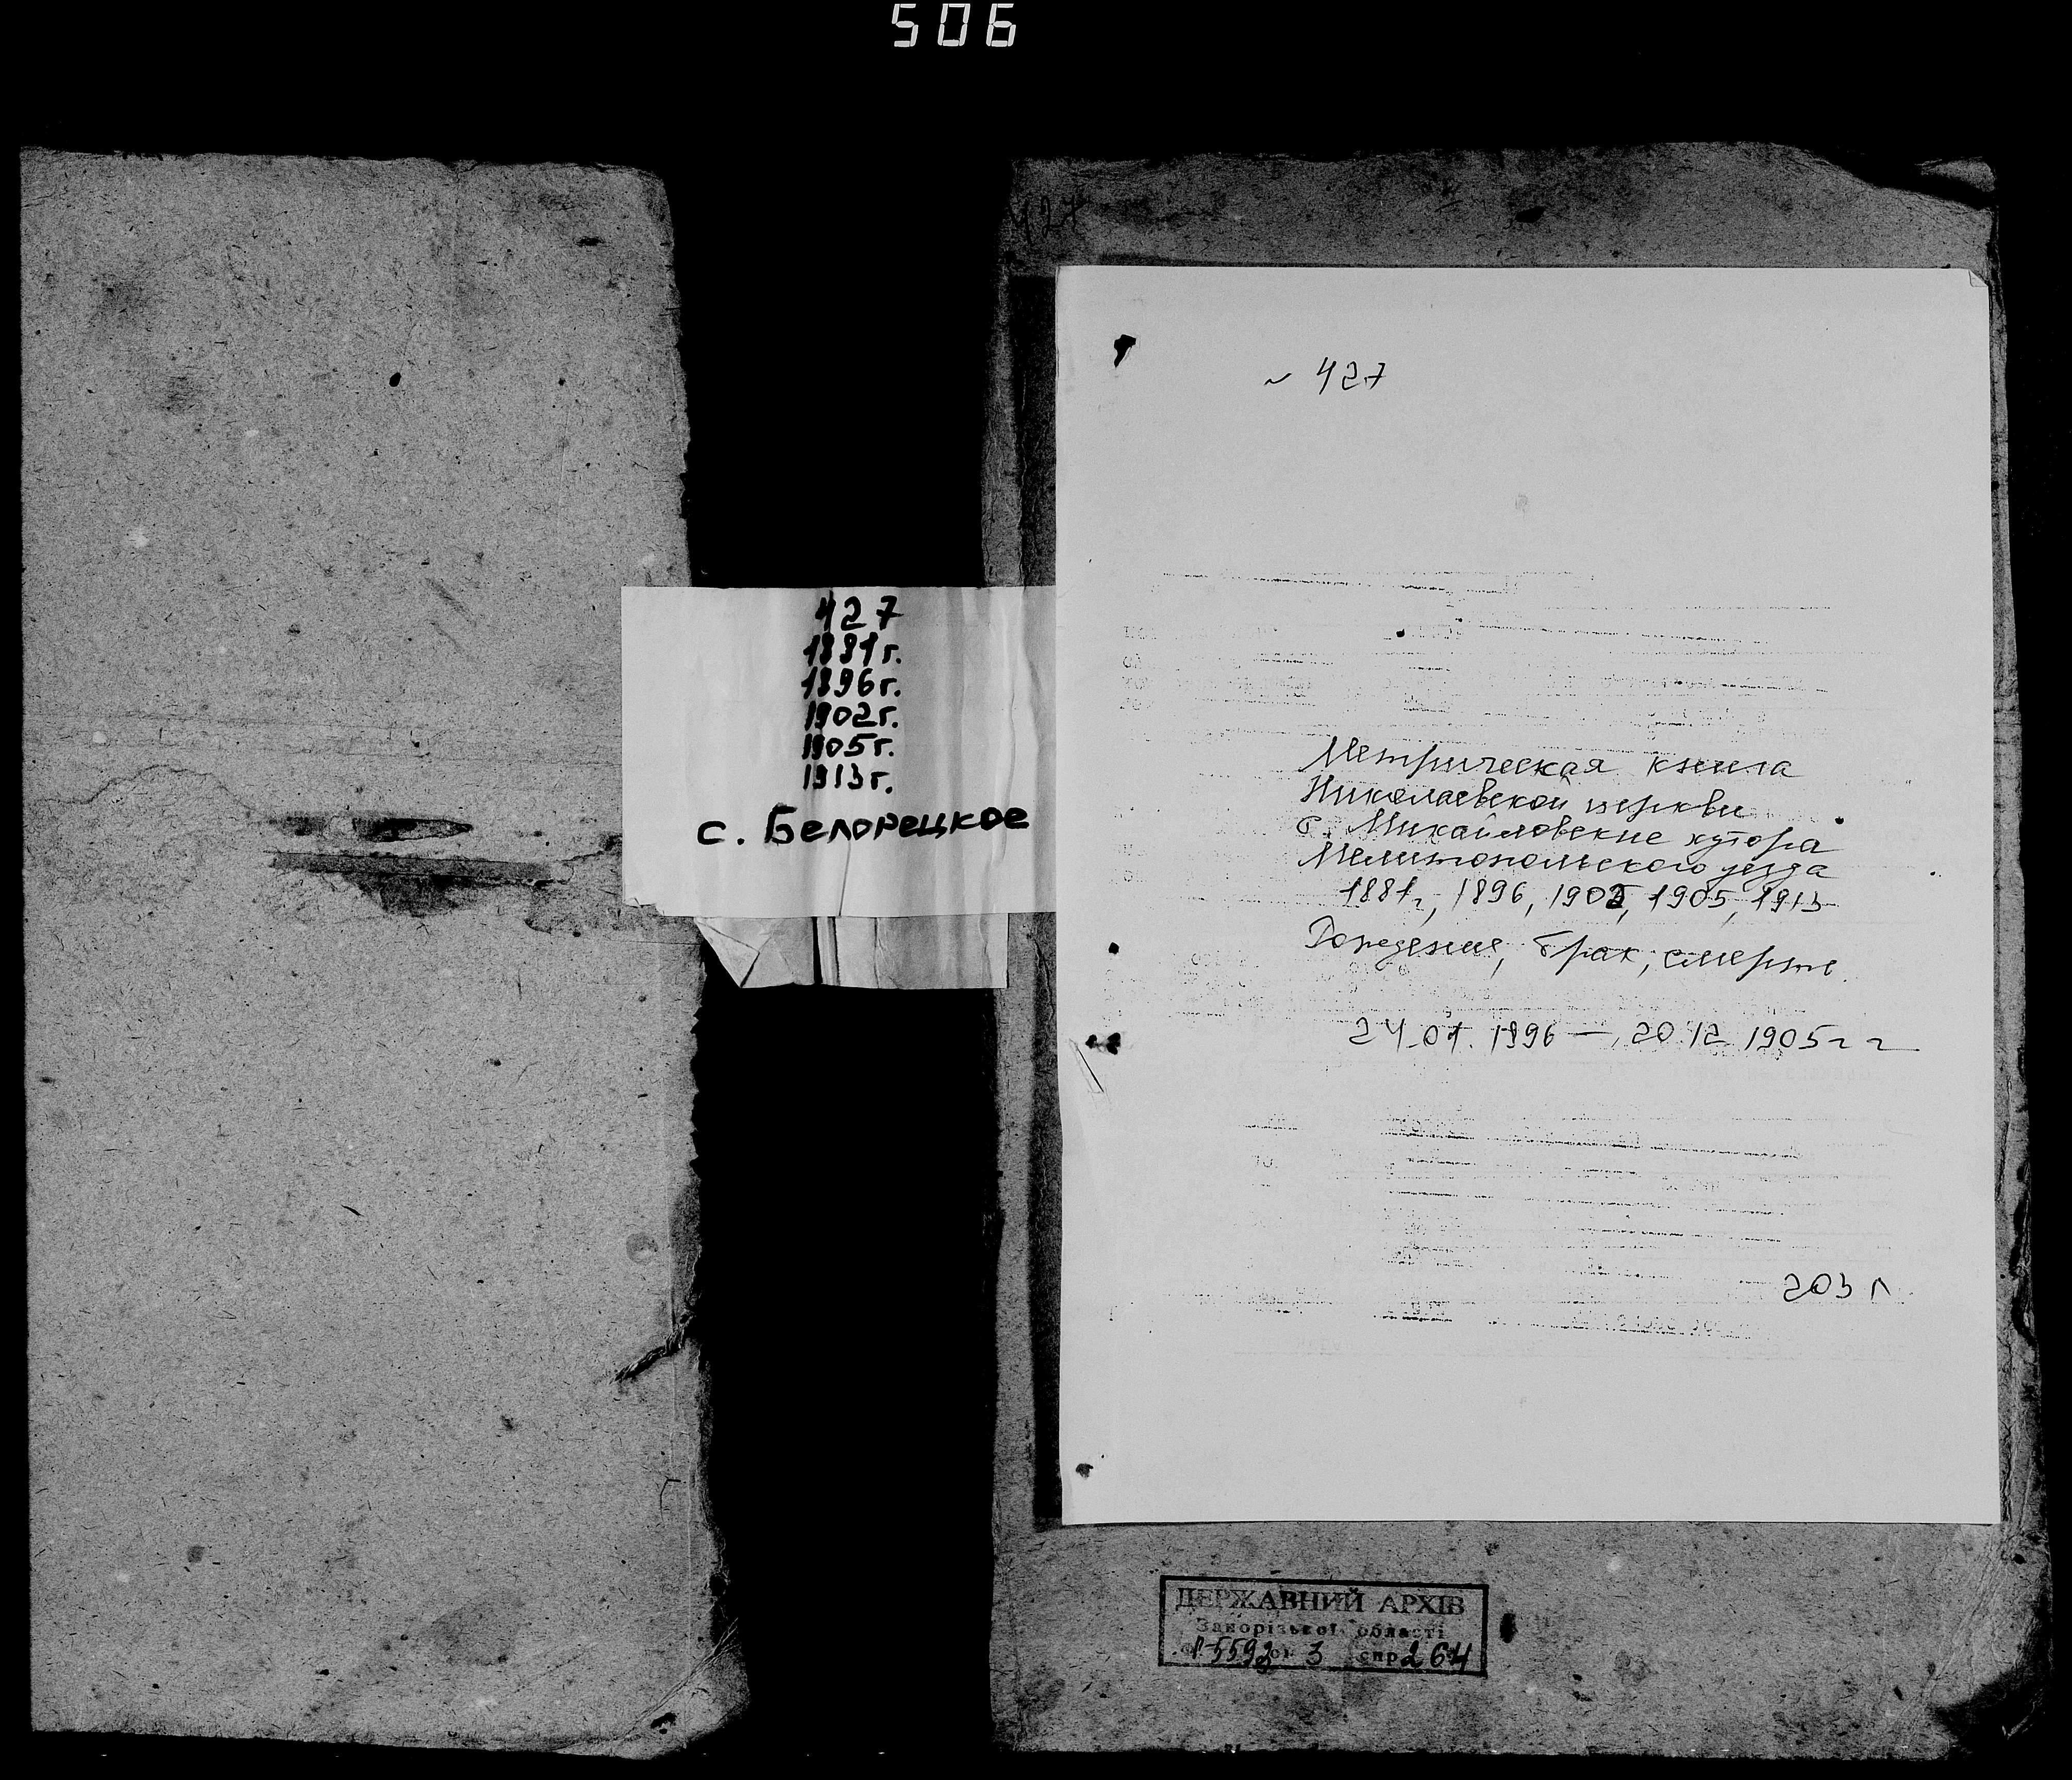 506
427
427
1881г.
1896г.
1902г.
1905г.
1913г.
с. Белорецкое
~ 427
Метрическая книга
Николаевской церкви
с. Михайловские хутора
Мелитопольского уезда
1881г, 1896, 1902, 1905, 1913
Рождение, брак, смерть.
24.01.1896 — 20 12 1905 г г
203 л.
ДЕРЖАВНИЙ АРХІВ
Запорізької області
Р-5593 оп 3 спр 264